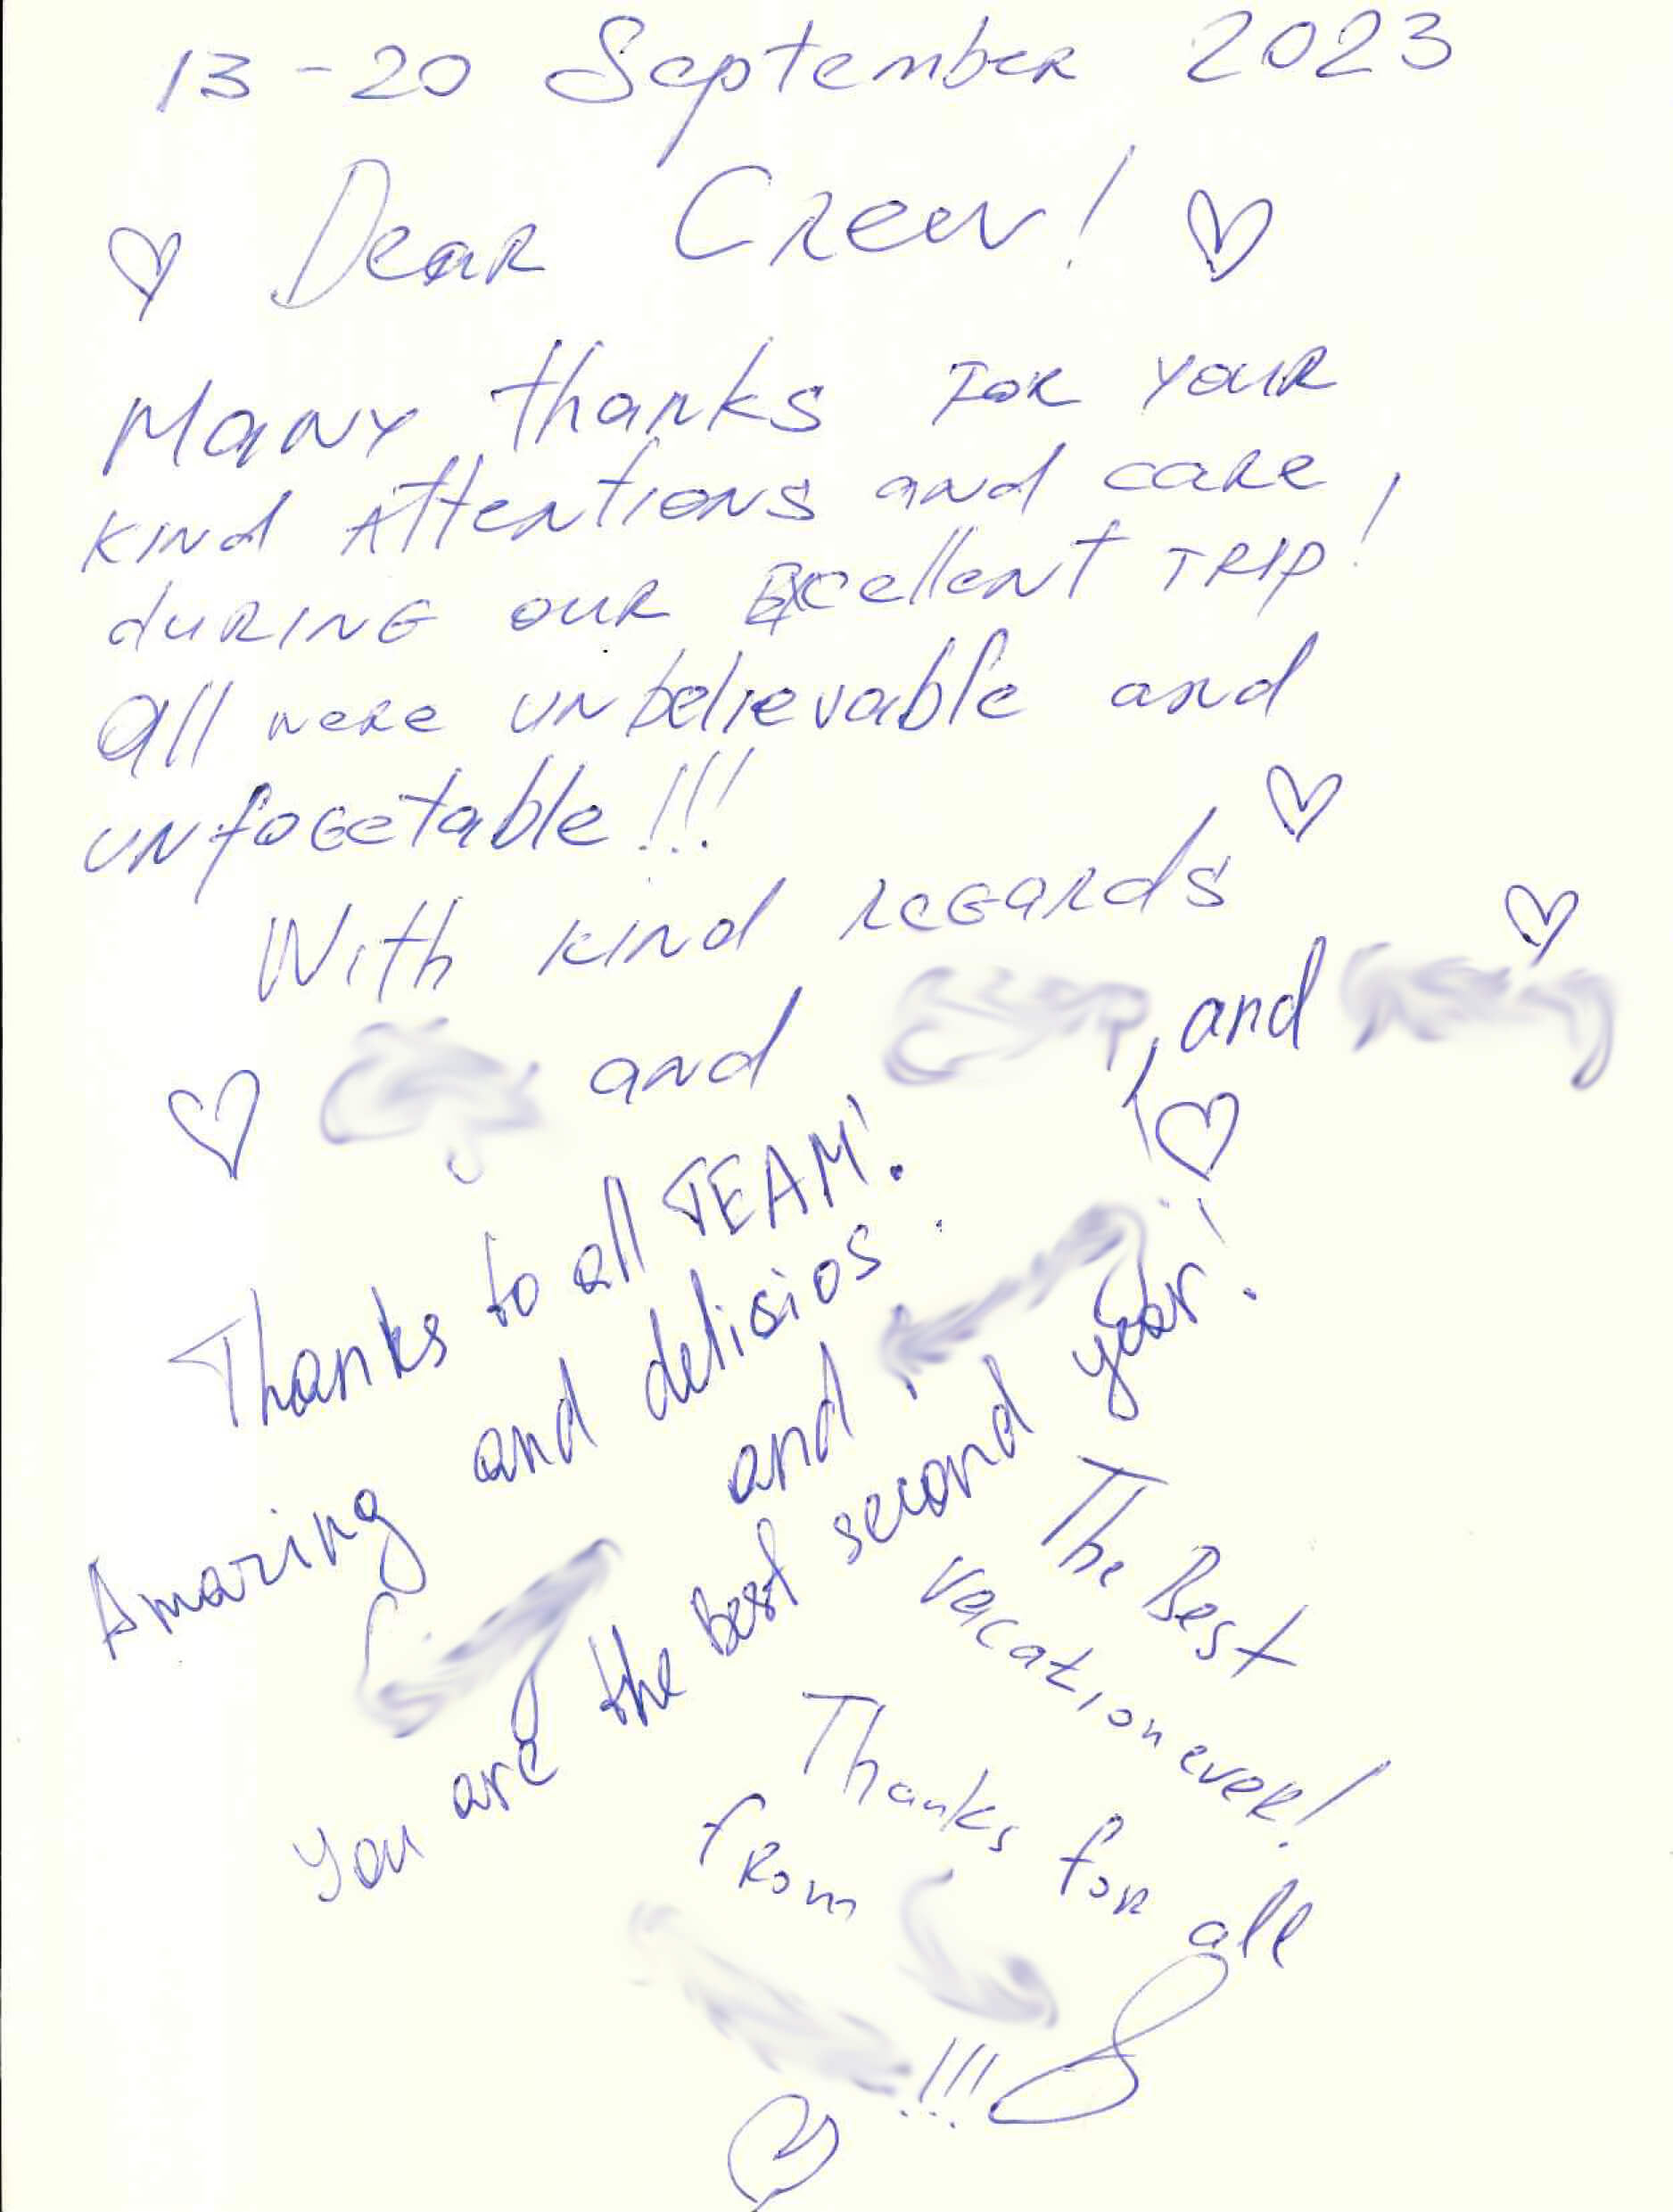 13-20 September 2023
Dear Crew!
Many thanks for your
kind Attentions and care,
during our Excellent TRIP!
All were unbelievable and
unfogetable!!!
With kind regards
and , and
Thanks to all TEAM!
Amazing and delicios
and
You are the best second year!
The Best
vacation ever!
Thanks for all
from
!!!